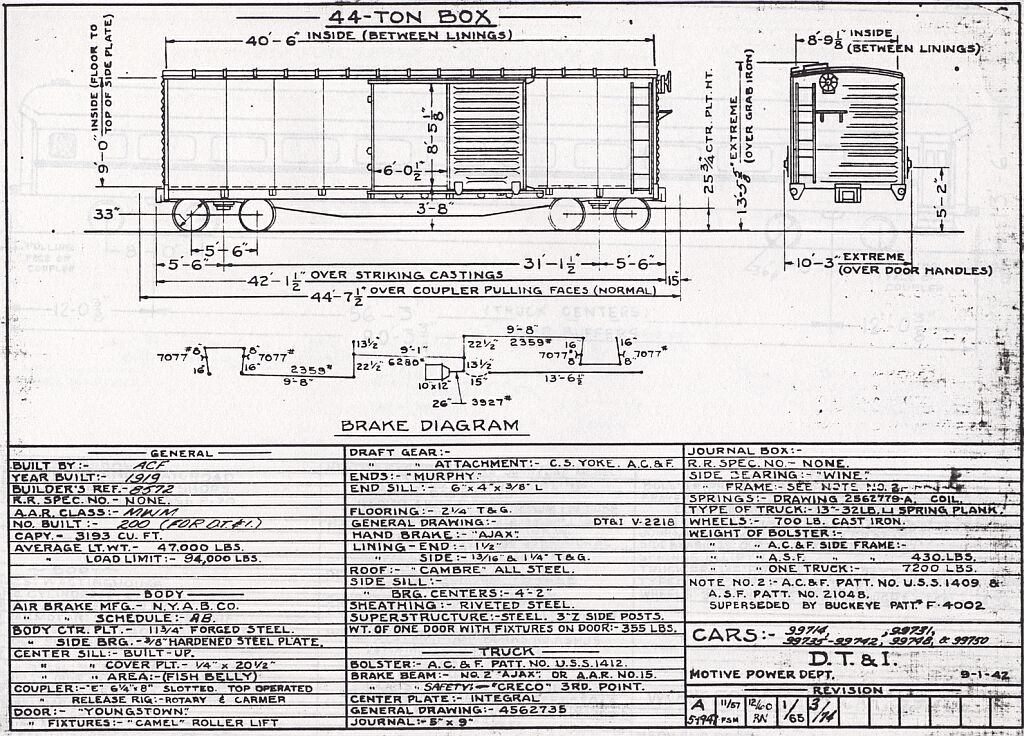 44-TON BOX
40'-6" INSIDE (BETWEEN LININGS)
9'-0" INSIDE (FLOOR TO
TOP OF SIDE PLATE)
8'-9 1/8" INSIDE
(BETWEEN LININGS)
8'-5 1/8"
6'-0 1/2"
3'-8"
33"
25 3/4" CTR. PLT. HT.
13'-5 5/8" EXTREME
(OVER GRAB IRON)
5'-2"
5'-6"
5'-6"
31'-1 1/2"
5'-6"
10'-3" EXTREME
(OVER DOOR HANDLES)
42'-1 1/2" OVER STRIKING CASTINGS
15"
44'-7 1/2" OVER COUPLER PULLING FACES (NORMAL)
7077# 8" 16" 8" 7077# 16" 2359# 9'-8"
13 1/2 22 1/2 9'-1" 6280# 10x12"
9'-8" 2359# 22 1/2" 13 1/2 15" 13'-6 1/2"
16" 7077# 8" 16" 8" 7077#
26" 3927#
BRAKE DIAGRAM
GENERAL
BUILT BY:- ACF
YEAR BUILT:- 1919
BUILDER'S REF.- 8572
R.R. SPEC. NO.- NONE.
A.A.R. CLASS:- MWM
NO. BUILT:- 200 (FOR D.T.&I.)
CAPY.- 3193 CU. FT.
AVERAGE LT. WT.- 47,000 LBS.
" LOAD LIMIT:- 94,000 LBS.
BODY
AIR BRAKE MFG.- N.Y.A.B.CO.
" " SCHEDULE:- AB.
BODY CTR. PLT.- 11 3/4" FORGED STEEL.
" SIDE BRG.- 3/8" HARDENED STEEL PLATE.
CENTER SILL:- BUILT-UP.
" " COVER PLT.- 1/4" x 20 1/2"
" " AREA:- (FISH BELLY)
COUPLER:- "E" 6 1/4"x 8" SLOTTED. TOP OPERATED
" RELEASE RIG:- ROTARY & CARMER
DOOR:- "YOUNGSTOWN"
" FIXTURES:- "CAMEL" ROLLER LIFT
DRAFT GEAR:-
" " ATTACHMENT:- C.S. YOKE. A.C.&F.
ENDS:- "MURPHY"
END SILL:- 6"x 4"x 3/8" L
FLOORING:- 2 1/4 T&G.
GENERAL DRAWING:- DT&I V-2218
HAND BRAKE:- "AJAX".
LINING-END:- 1 1/2"
" SIDE:- 13/16" & 1 1/4" T&G.
ROOF:- "CAMBRE" ALL STEEL.
SIDE SILL:-
" BRG. CENTERS:- 4'-2"
SHEATHING:- RIVETED STEEL.
SUPERSTRUCTURE:- STEEL. 3" Z SIDE POSTS.
WT. OF ONE DOOR WITH FIXTURES ON DOOR:- 355 LBS.
TRUCK
BOLSTER:- A.C.&F. PATT. NO. U.S.S. 1412.
BRAKE BEAM:- NO. 2 "AJAX". OR A.A.R. NO. 15.
" " SAFETY:- "CRECO" 3RD. POINT.
CENTER PLATE:- INTEGRAL
GENERAL DRAWING:- 4562735
JOURNAL:- 5" x 9"
JOURNAL BOX:-
R.R. SPEC. NO.- NONE.
SIDE BEARING:- "WINE"
" FRAME:- SEE NOTE NO. 2
SPRINGS:- DRAWING 2562778-A, COIL.
TYPE OF TRUCK:- 13"-32LB. LI SPRING PLANK.
WHEELS:- 700 LB. CAST IRON.
WEIGHT OF BOLSTER:-
" " A.C.&F. SIDE FRAME:-
" " A.S.F. " " 430.LBS.
" " ONE TRUCK:- 7200 LBS.
NOTE NO. 2:- A.C.&F. PATT. NO. U.S.S. 1409 &
A.S.F. PATT. NO. 21048.
SUPERSEDED BY BUCKEYE PATT.# F-4002
CARS:- 99714, , 99731,
99735-99742, 99748, & 99750
D.T.&I.
MOTIVE POWER DEPT. 9-1-42
REVISION
A 11/57 FSM 12/60 RN 1/65 3/74